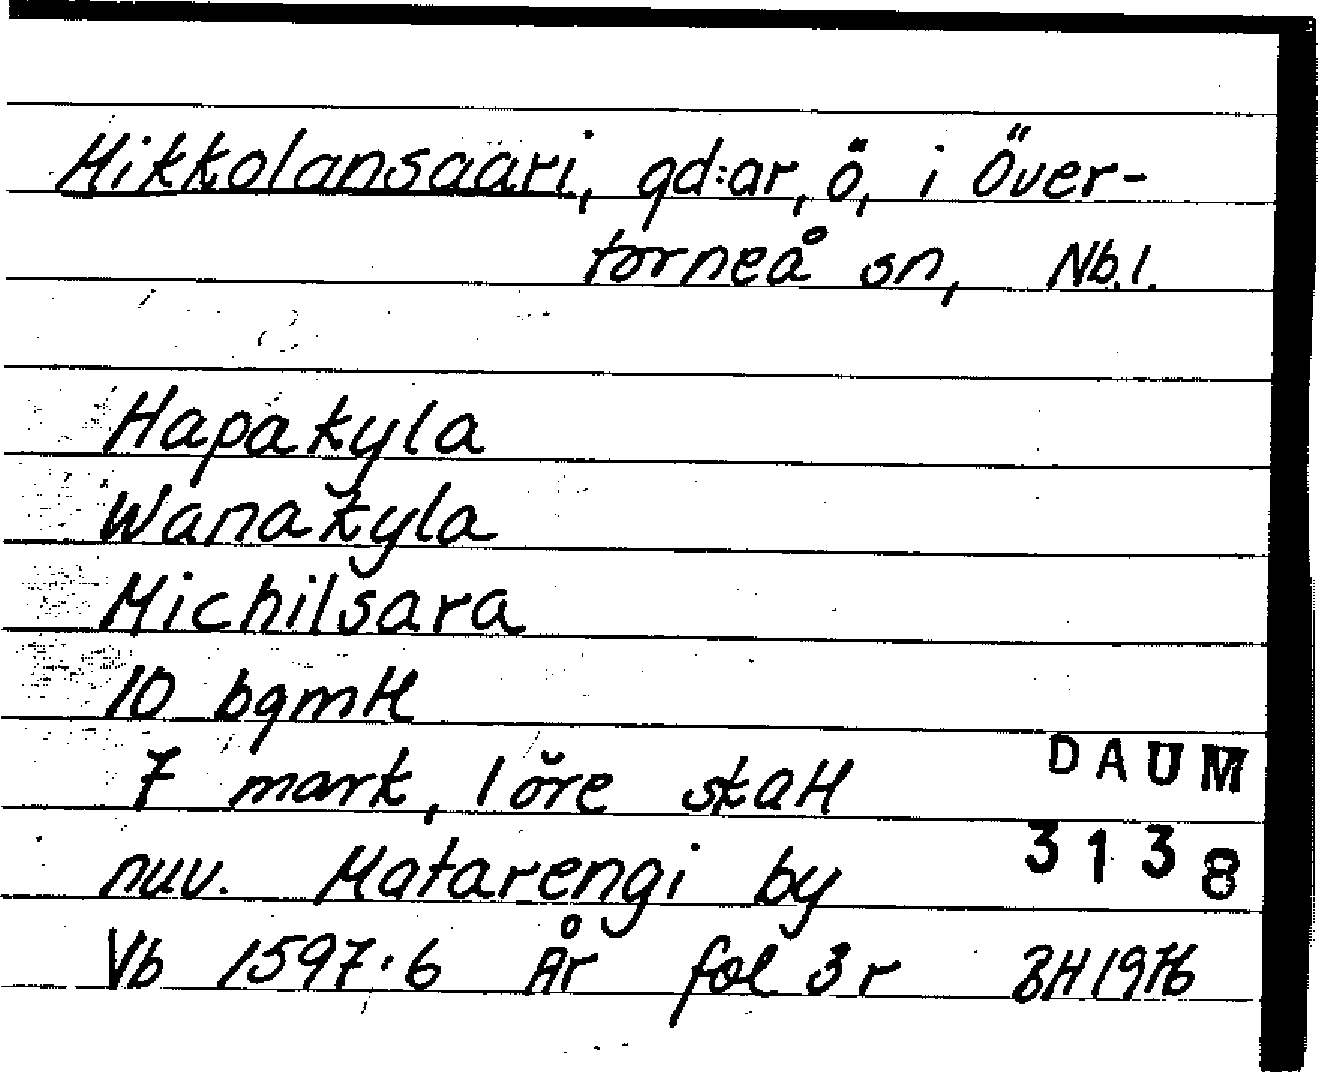 Mikkolansaari, gd:ar, ö, i Över-
torneå sn, Nb.l.
Hapakyla
Wanakyla
Michilsara
10 bgmH
7 mark, 1 öre skaH
DAUM
nuv. Matarengi by
3138
Vb 1597:6 År fol 3r BH 1976